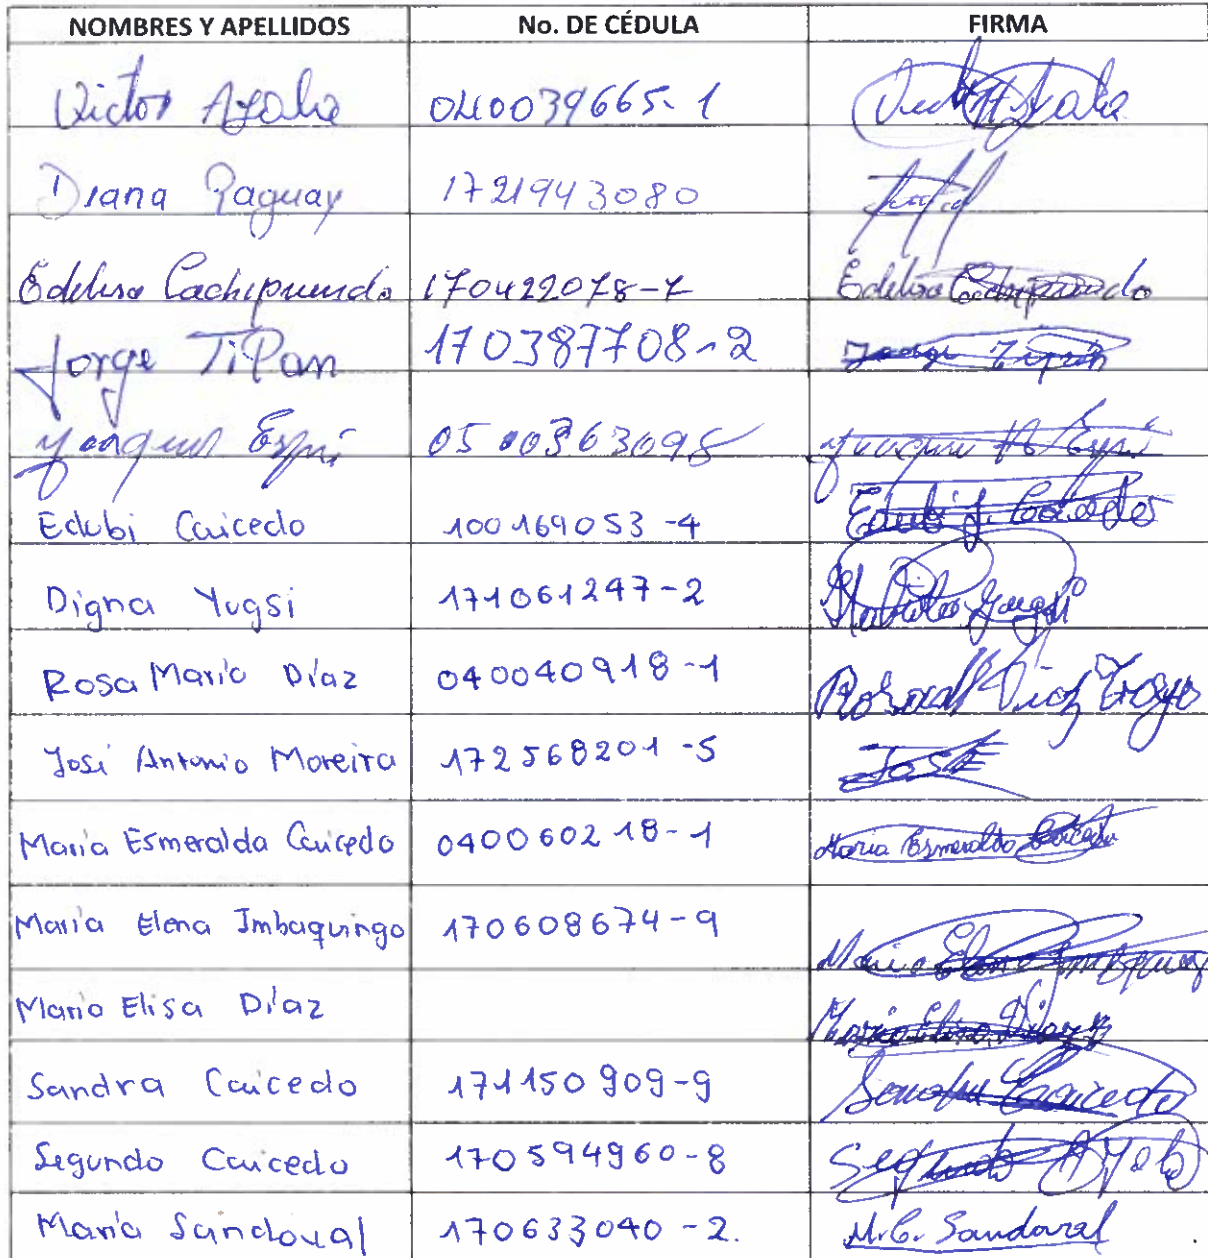 NOMBRES Y APELLIDOS No. DE CÉDULA FIRMA
Victor Ayala 040039665-1 Ayala
Diana Paguay 1721943080
Edelina Cachipuendo 170422078-7 Edelina Cachipuendo
Jorge TiPan 170387708-2 Jorge Tipán
Joaquin Espín 0500363095 Joaquin Espín
Edubi Caicedo 100169053-4 Edubi J. Caicedo
Digna Yugsi 171061247-2 Yugsi
Rosa Maria Díaz 040040918-1 Rosa Díaz
José Antonio Moreira 172568201-5 JOSE
Maria Esmeralda Caicedo 040060218-1 Maria Esmeralda Caicedo
Maria Elena Imbaquingo 170608674-9 Maria Elena
Maria Elisa Díaz Maria Elisa Diaz
Sandra Caicedo 171150909-9 Sandra Caicedo
Segundo Caicedo 170594960-8 Segundo
María Sandoval 170633040-2. M.C. Sandoval